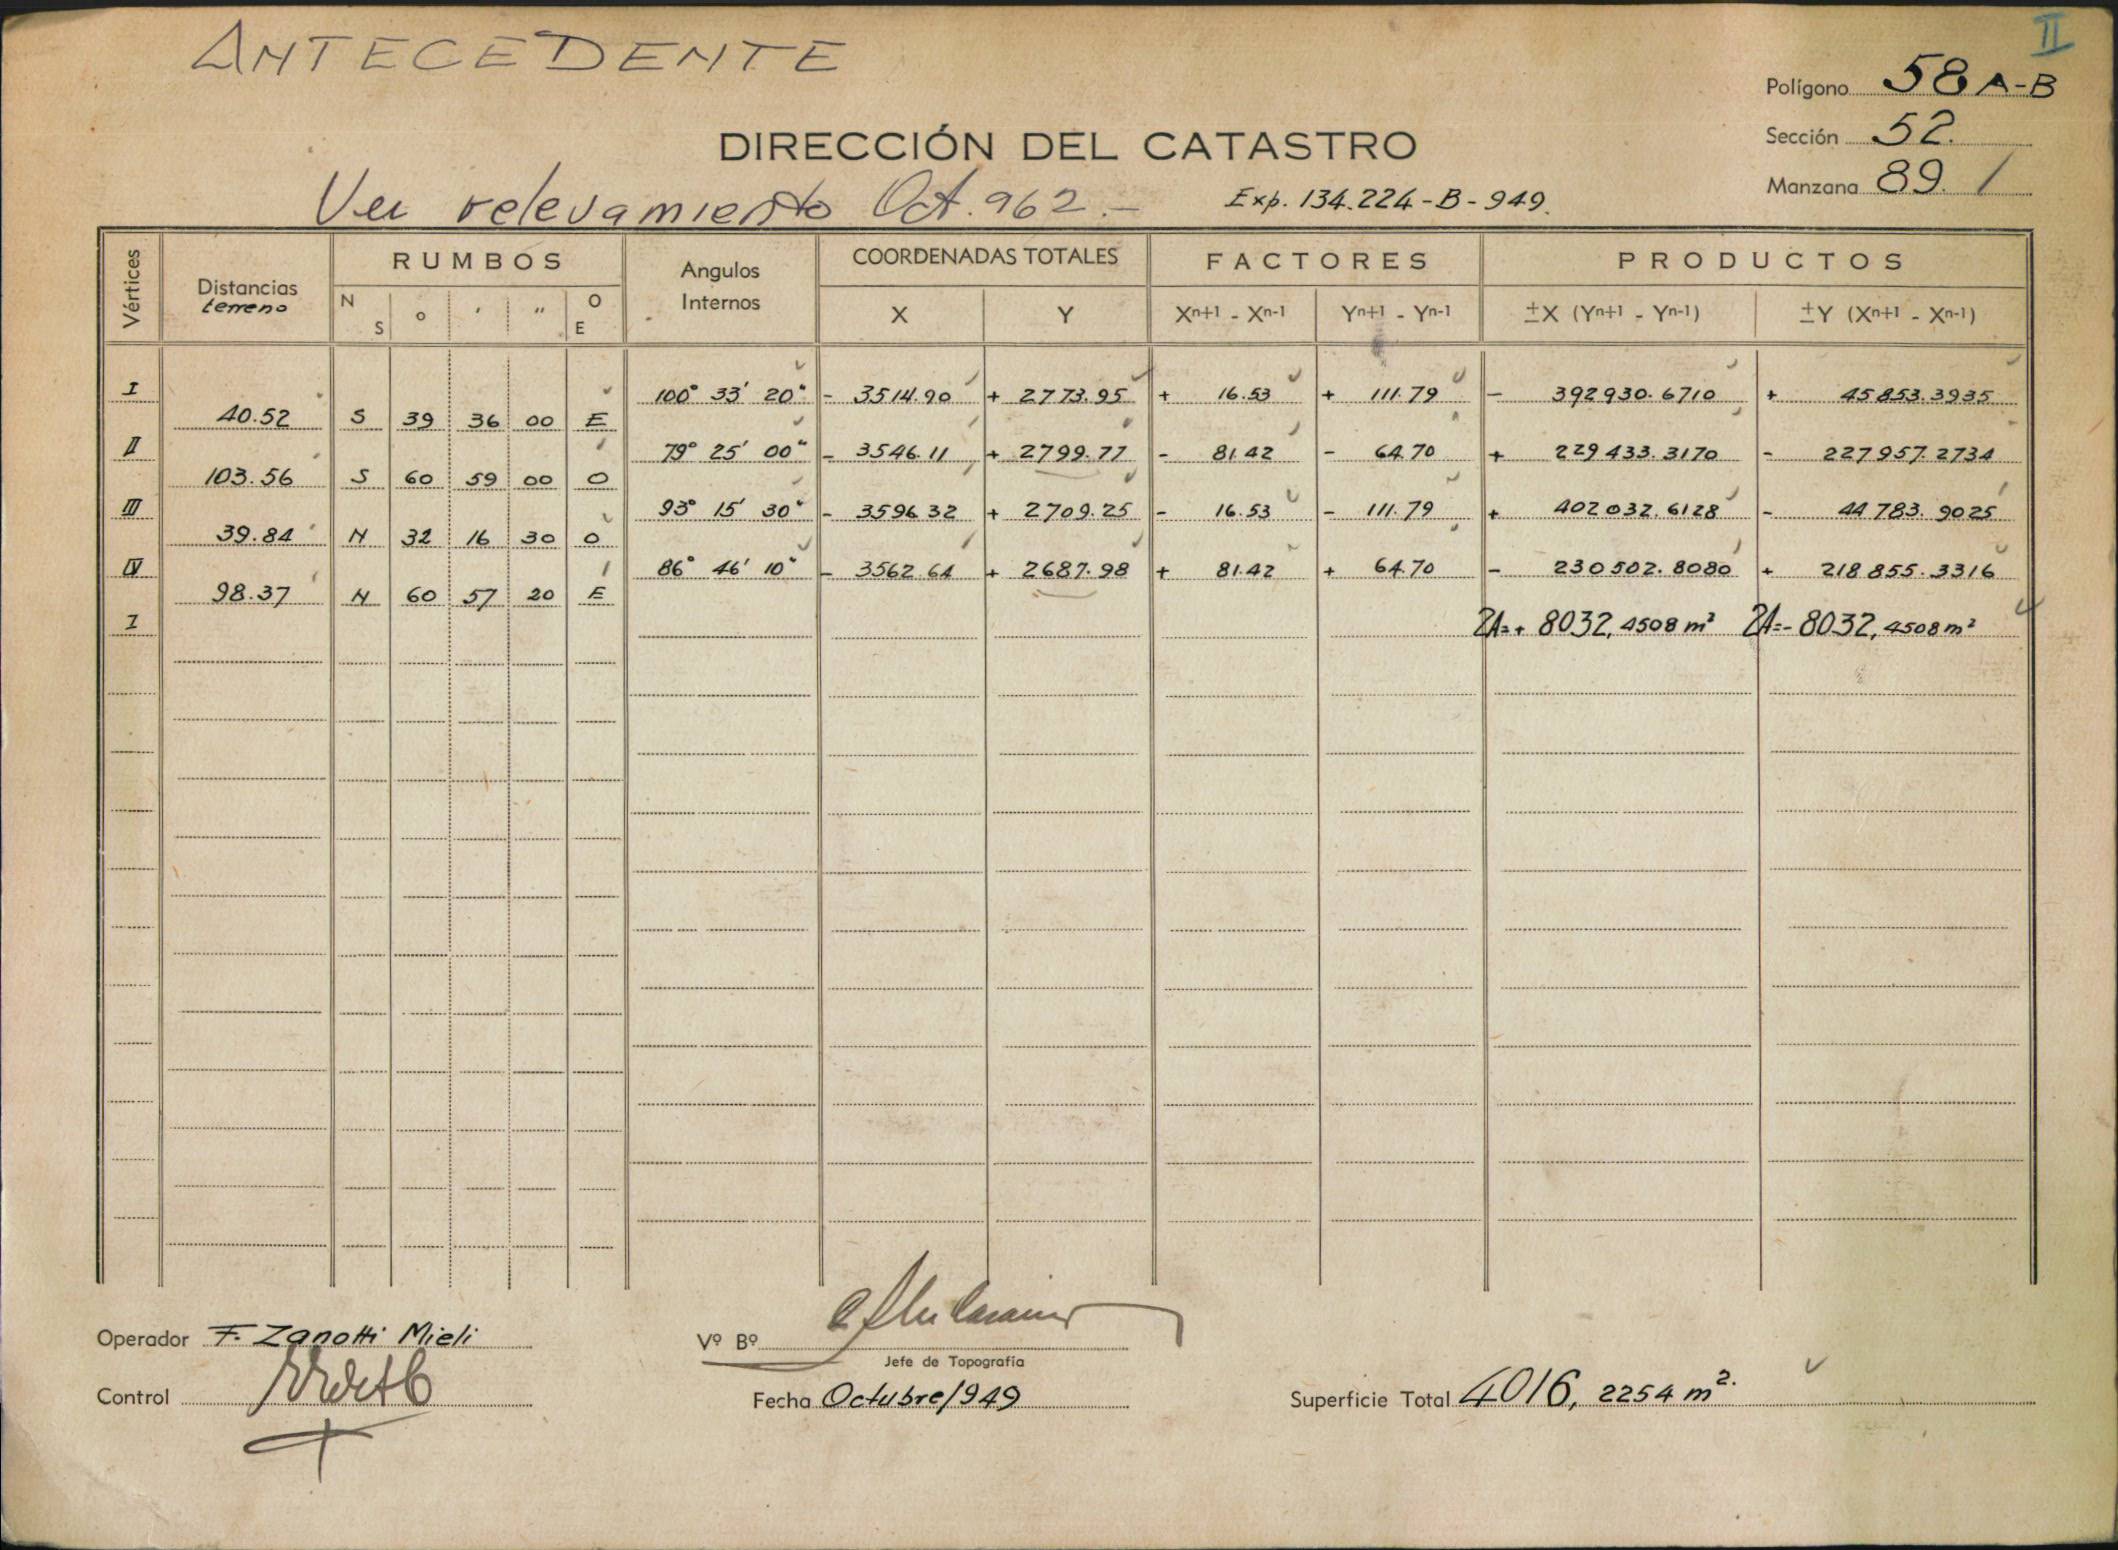 II
ANTECEDENTE
Polígono 58 A-B
DIRECCIÓN DEL CATASTRO
Sección 52.
Manzana 89. /
Ver relevamiento Oct. 962.-
Exp. 134.224-B-949.
Vértices Distancias terreno RUMBOS Angulos Internos COORDENADAS TOTALES FACTORES PRODUCTOS
N S o ' " O E X Y Xn+1 - Xn-1 Yn+1 - Yn-1 ±X (Yn+1 - Yn-1) ±Y (Xn+1 - Xn-1)
I 100° 33' 20" - 3514.90 + 2773.95 + 16.53 + 111.79 - 392930.6710 + 45853.3935
40.52 S 39 36 00 E
II 79° 25' 00" - 3546.11 + 2799.77 - 81.42 - 64.70 + 229433.3170 - 227957.2734
103.56 S 60 59 00 O
III 93° 15' 30" - 3596.32 + 2709.25 - 16.53 - 111.79 + 402032.6128 - 44783.9025
39.84 N 32 16 30 O
IV 86° 46' 10" - 3562.64 + 2687.98 + 81.42 + 64.70 - 230502.8080 + 218855.3316
98.37 N 60 57 20 E
I 2A=+ 8032,4508 m² 2A=- 8032,4508 m²
Operador F. Zanotti Mieli
Vº Bº
Jefe de Topografía
Control
Fecha Octubre/949
Superficie Total 4016, 2254 m².